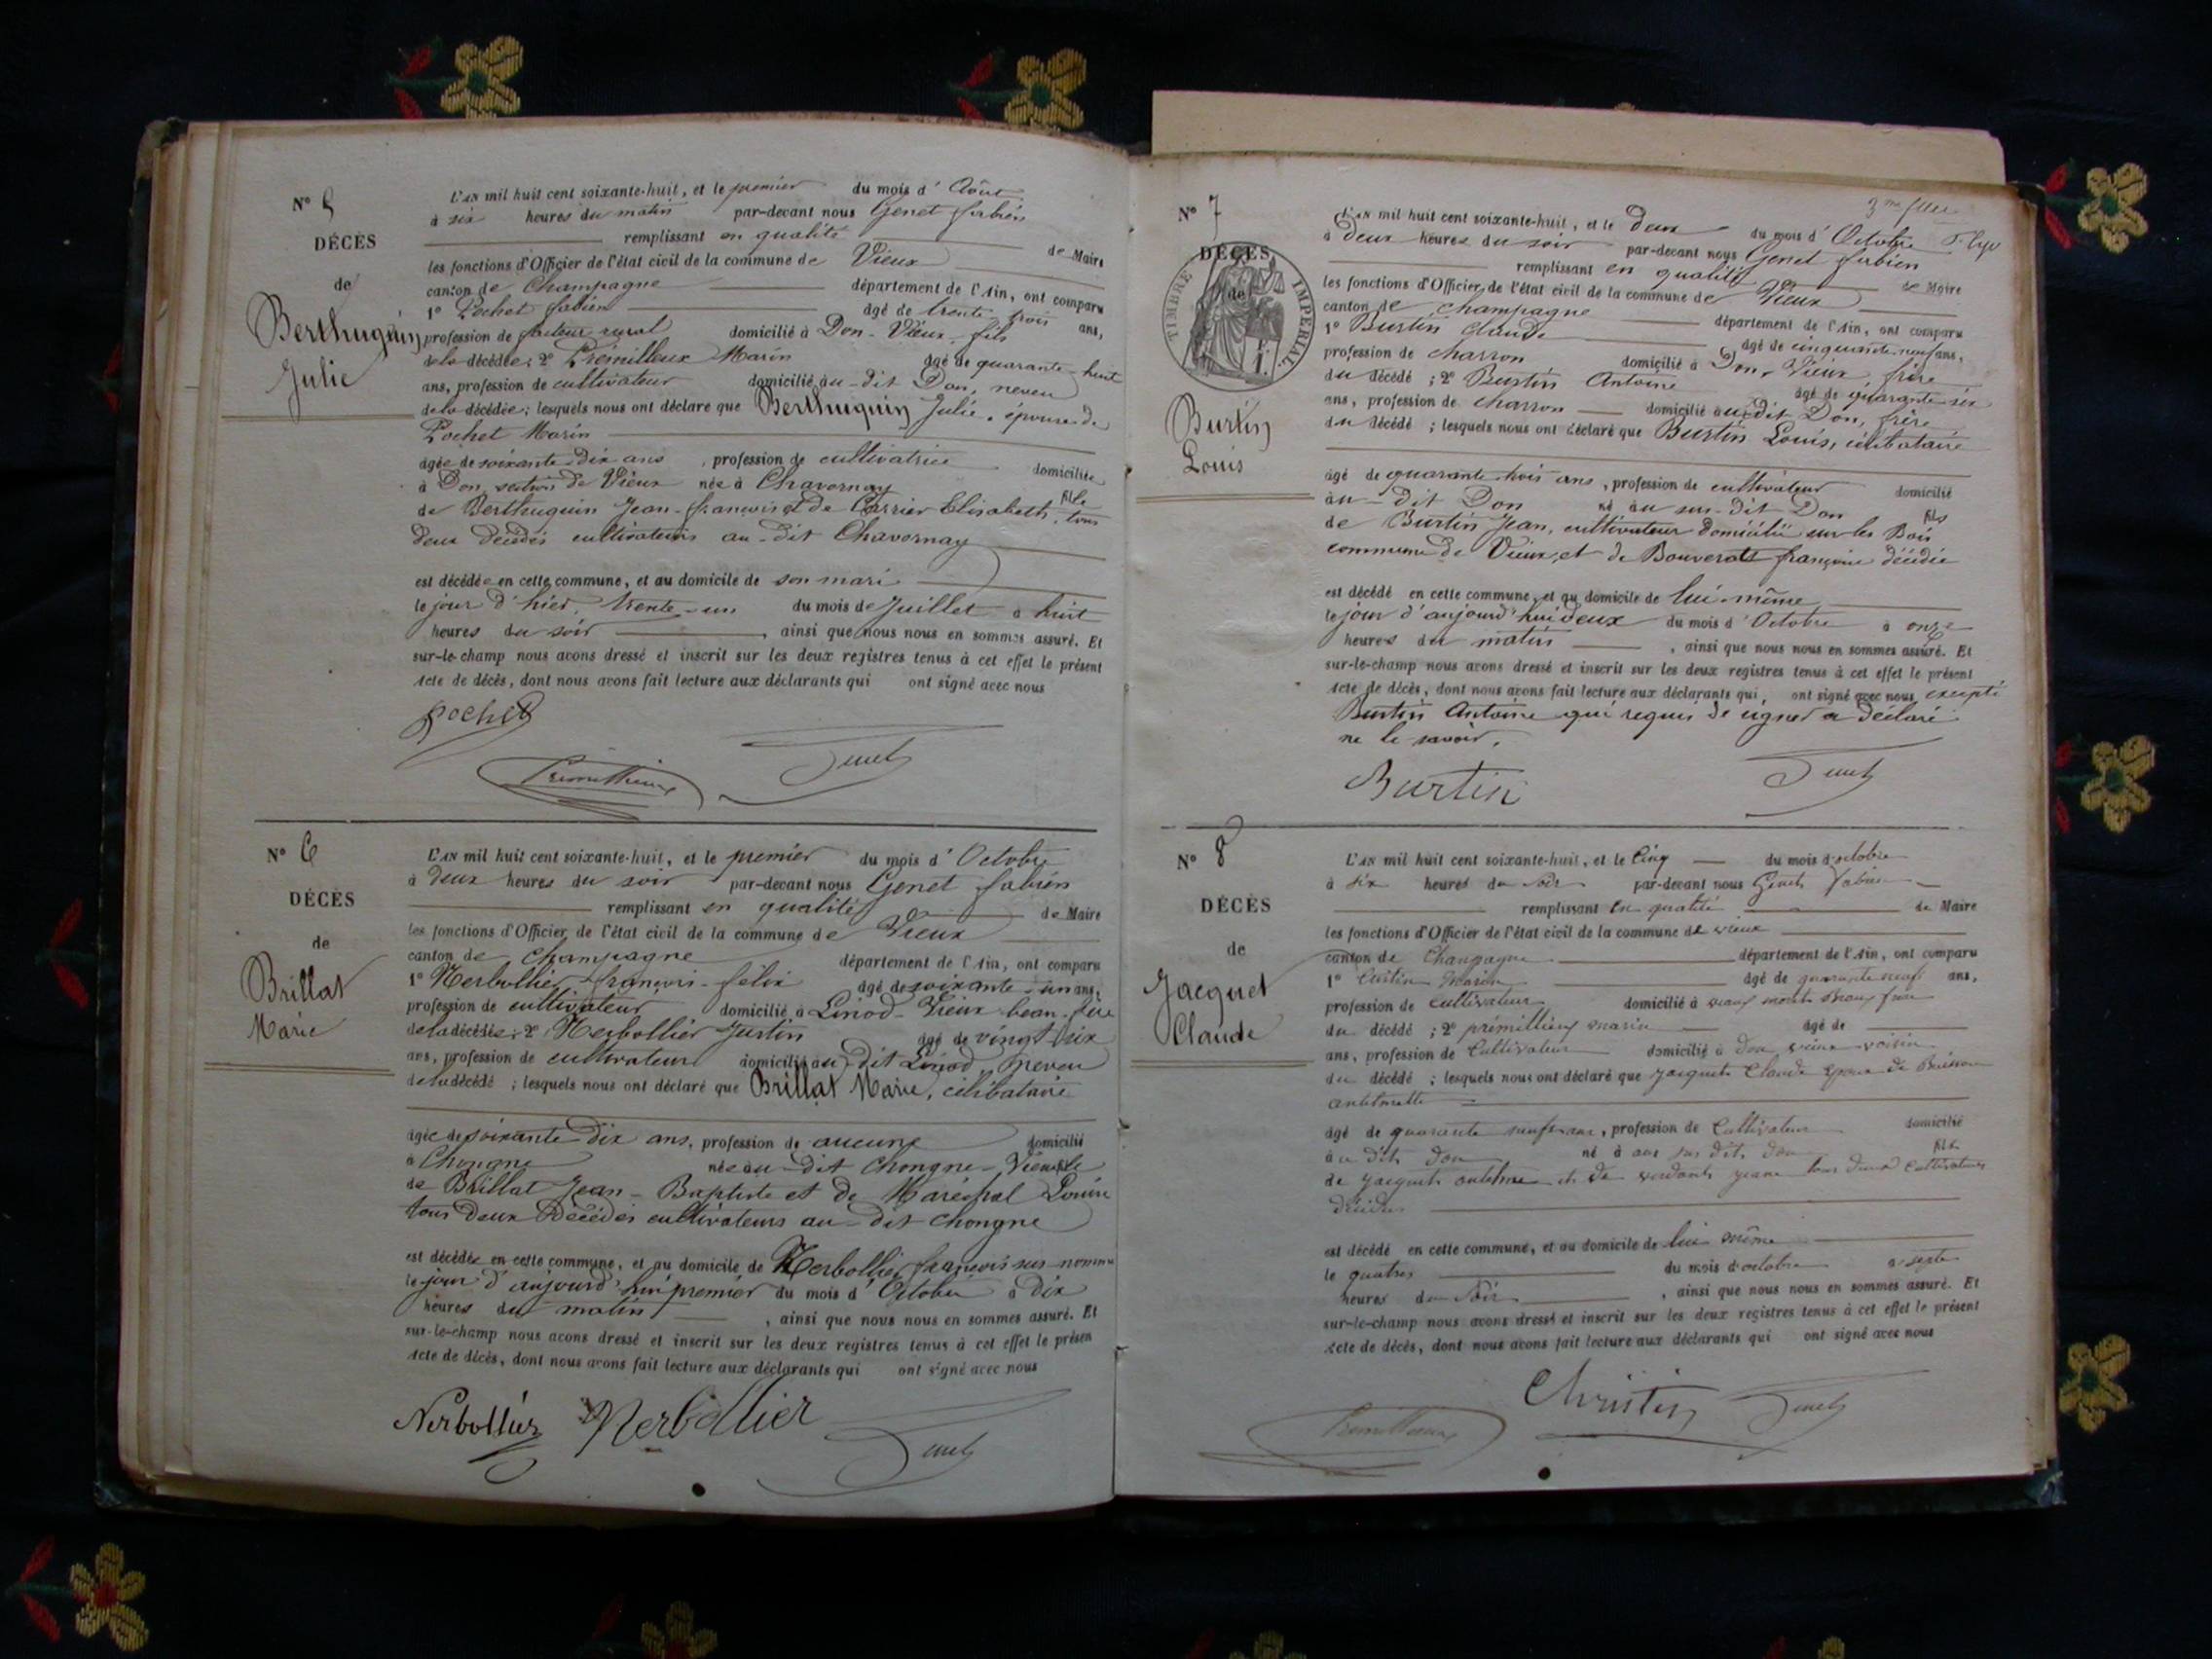 N° 5
DÉCÈS
de
Berthuguin
Julie
L'AN mil huit cent soixante-huit, et le premier du mois d'Août
à six heures du matin par-devant nous Genet fabien
remplissant en qualité de Maire
les fonctions d'Officier de l'état civil de la commune de Vieux
canton de Champagne département de l'Ain, ont comparu
1° Pochet fabien âgé de trente trois ans,
profession de facteur rural domicilié à Don-Vieux, fils
de la décédée; 2° Prémilleux Marin âgé de quarante-huit
ans, profession de cultivateur domicilié au-dit Don, neveu
de la décédée; lesquels nous ont déclaré que Berthuguin Julie, épouse de
Pochet Marin
âgée de soixante-dix ans, profession de cultivatrice domiciliée
à Don, section de Vieux née à Chavornay fille
de Berthuguin Jean-françois et de Carrier Elisabeth, tous
deux décédés cultivateurs au-dit Chavornay
est décédée en cette commune, et au domicile de son mari
le jour d'hier, trente-un du mois de Juillet à huit
heures du soir, ainsi que nous nous en sommes assuré. Et
sur-le-champ nous avons dressé et inscrit sur les deux registres tenus à cet effet le présent
acte de décès, dont nous avons fait lecture aux déclarants qui ont signé avec nous
Pochet
Premillieux Genet
N° 6
DÉCÈS
de
Brillat
Marie
L'AN mil huit cent soixante-huit, et le premier du mois d'Octobre
à deux heures du soir par-devant nous Genet fabien
remplissant en qualité de Maire
les fonctions d'Officier de l'état civil de la commune de Vieux
canton de Champagne département de l'Ain, ont comparu
1° Nerbollier françois-félix âgé de soixante-un ans,
profession de cultivateur domicilié à Linod-Vieux beau-frère
de la décédée; 2° Nerbollier Justin âgé de vingt six
ans, profession de cultivateur domicilié au-dit Linod, neveu
de la décédé; lesquels nous ont déclaré que Brillat Marie, célibataire
âgée de soixante dix ans, profession de aucune domicilié
à Chongne née au-dit Chongne-Vieux fille
de Brillat Jean-Baptiste et de Maréchal Louise
tous deux décédés cultivateurs au-dit Chongne
est décédée en cette commune, et au domicile de Nerbollier françois sus-nommé
le jour d'aujourd'hui premier du mois d'Octobre à dix
heures du matin, ainsi que nous nous en sommes assuré. Et
sur-le-champ nous avons dressé et inscrit sur les deux registres tenus à cet effet le présen
acte de décès, dont nous avons fait lecture aux déclarants qui ont signé avec nous
Nerbollier Nerbollier Genet
N° 7
DÉCÈS
de
TIMBRE IMPÉRIAL
Burtin
Louis
L'AN mil huit cent soixante-huit, et le deux du mois d'Octobre
à deux heures du soir par-devant nous Genet fabien
remplissant en qualité de Maire
les fonctions d'Officier de l'état civil de la commune de Vieux
canton de Champagne département de l'Ain, ont comparu
1° Burtin Claude âgé de cinquante-neuf ans,
profession de charron domicilié à Don, Vieux, frère
du décédé; 2° Burtin Antoine âgé de quarante-six
ans, profession de charron domicilié au-dit Don, frère
du décédé; lesquels nous ont déclaré que Burtin Louis, célibataire
âgé de quarante trois ans, profession de cultivateur domicilié
au-dit Don né au sus-dit Don fils
de Burtin Jean, cultivateur domicilié sur les Bois
commune de Vieux, et de Bouverat françoise décédée
est décédé en cette commune, et au domicile de lui-même
le jour d'aujourd'hui deux du mois d'Octobre à onze
heures du matin, ainsi que nous nous en sommes assuré. Et
sur-le-champ nous avons dressé et inscrit sur les deux registres tenus à cet effet le présent
acte de décès, dont nous avons fait lecture aux déclarants qui, ont signé avec nous excepté
Burtin Antoine qui requis de signer a déclaré
ne le savoir.
Burtin Genet
N° 8
DÉCÈS
de
Jacquet
Claude
L'AN mil huit cent soixante-huit, et le Cinq du mois d'octobre
à six heures du soir par-devant nous Genet fabien
remplissant en qualité de Maire
les fonctions d'Officier de l'état civil de la commune de vieux
canton de Champagne département de l'Ain, ont comparu
1° âgé de quarante neuf ans,
profession de Cultivateur domicilié à beau frère
du décédé; 2° prémillieux marin âgé de
ans, profession de Cultivateur domicilié à don vieux voisin
du décédé; lesquels nous ont déclaré que jacquet Claude époux de
anthelmette
âgé de quarante neuf ans, profession de Cultivateur domicilié
au dit don né à au sus dit don fils
de jacquet anthelme et de jeane tous deux Cultivateurs
décédés
est décédé en cette commune, et au domicile de lui même
le quatres du mois d'octobre à septe
heures du soir, ainsi que nous nous en sommes assuré. Et
sur-le-champ nous avons dressé et inscrit sur les deux registres tenus à cet effet le présent
acte de décès, dont nous avons fait lecture aux déclarants qui ont signé avec nous
Christin Genet
Premillieux